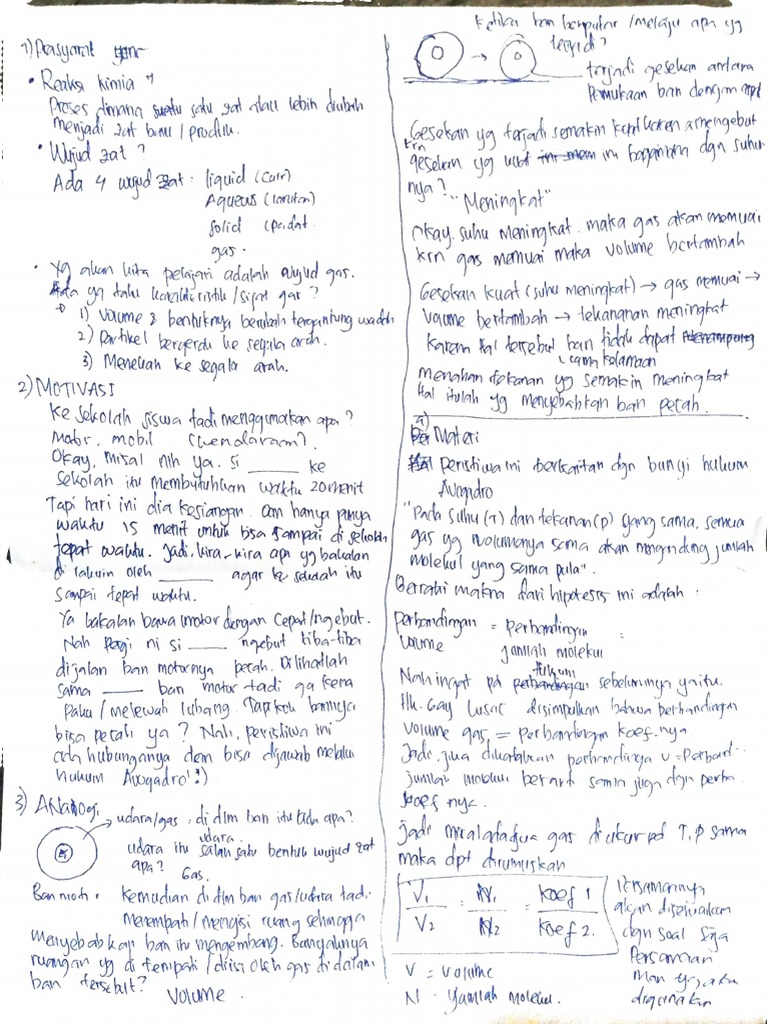 1) Prasyarat
• Reaksi kimia ?
Proses dimana suatu satu zat atau lebih diubah
menjadi zat baru / produk.
• Wujud zat ?
Ada 4 wujud zat : liquid (cair)
Aqueus (larutan)
solid (padat
gas.
• Yg akan kita pelajari adalah wujud gas.
Ada yg tahu karakteristik / sifat gas ?
1) Volume & bentuknya berubah tergantung wadah
2) Partikel bergerak ke segala arah.
3) Menekan ke segala arah.
2) MOTIVASI
Ke sekolah siswa tadi menggunakan apa ?
Motor, mobil (kendaraan).
Okay, misal nih ya. si ____ ke
sekolah itu membutuhkan waktu 20 menit
Tapi hari ini dia kesiangan. Dan hanya punya
waktu 15 menit untuk bisa sampai di sekolah
tepat waktu. Jadi, kira-kira apa yg bakalan
di lakuin oleh ____ agar ke sekolah itu
sampai tepat waktu.
Ya bakalan bawa motor dengan cepat/ngebut.
Nah pagi ni si ____ ngebut tiba-tiba
dijalan ban motornya pecah. Dilihatlah
sama ____ ban motor tadi ga kena
paku / melewati lubang. Tapi koh bannya
bisa pecah ya ? Nah, peristiwa ini
ada hubunganya dan bisa dijawab melalui
hukum Avogadro :)
3) ANAlogi
udara/gas : di dlm ban itu ada apa?
udara.
udara itu salah satu bentuk wujud zat
apa? Gas.
Ban motor. Kemudian di dlm ban gas/udara tadi
menempati / mengisi ruang sehingga
menyebabkan ban itu mengembang. Banyaknya
ruangan yg di tempati / diisi oleh gas di dalam
ban tersebut? Volume.
Ketika ban berputar / melaju apa yg
terjadi?
terjadi gesekan antara
permukaan ban dengan aspal
Gesekan yg terjadi semakin kuat karena mengebut
krn
gesekan yg kuat ini bagaimana dgn suhu
nya? "Meningkat"
Okay, suhu meningkat. maka gas akan memuai
krn gas memuai maka volume bertambah
Gesekan kuat (suhu meningkat) → gas memuai →
Volume bertambah → tekanan meningkat
Karena hal tersebut ban tidak dapat
lama kelamaan
menahan tekanan yg semakin meningkat
Hal itulah yg menyebabkan ban pecah.
a)
Materi
Peristiwa ini berkaitan dgn bunyi hukum
Avogadro
"Pada suhu (T) dan tekanan (P) yang sama, semua
gas yg volumenya sama akan mengandung jumlah
molekul yang sama pula".
Berarti makna dari hipotesis ini adalah :
Perbandingan = perbandingan
Volume jumlah molekul
hukum
Nah ingat pd sebelumnya yaitu.
Hk. Gay Lusac disimpulkan bahwa perbandingan
Volume gas = Perbandingan koef.nya.
Jadi jika dikatakan perbandingan V = Perband..
jumlah molekul berarti sama juga dgn perba.
koef nya.
Jadi misal ada dua gas diukur pd T, P sama
maka dpt dirumuskan
V1 / V2 = N1 / N2 = Koef 1 / Koef 2.
Persamannya
akan disesuaikan
dgn soal saja
Persamaan
mana yg akan
digunakan
V = Volume
N = Jumlah molekul.